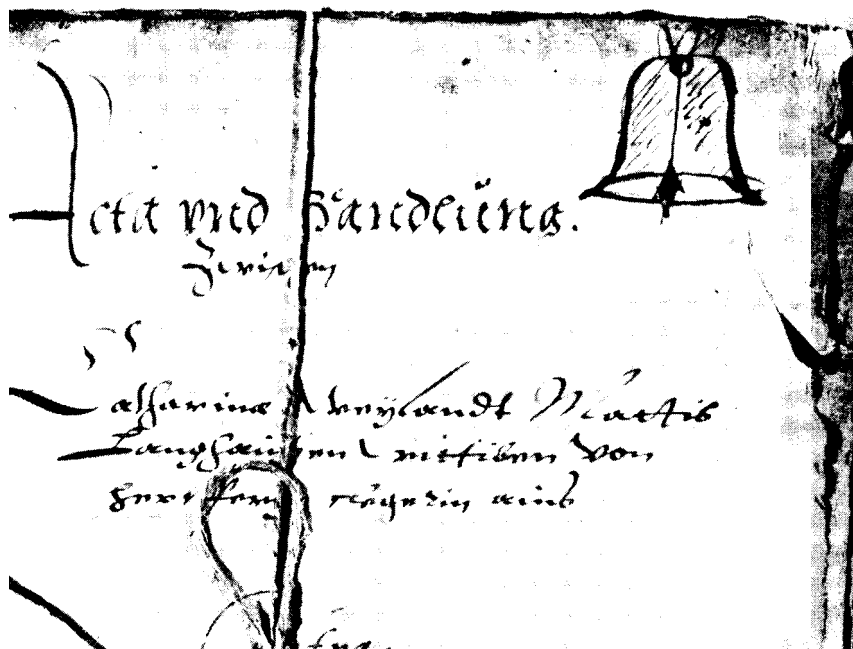 Acta vnd Handlŭng.
Zwischen
Catharina weylandt Mattis
Langhansen wittiben von
clägerin ains